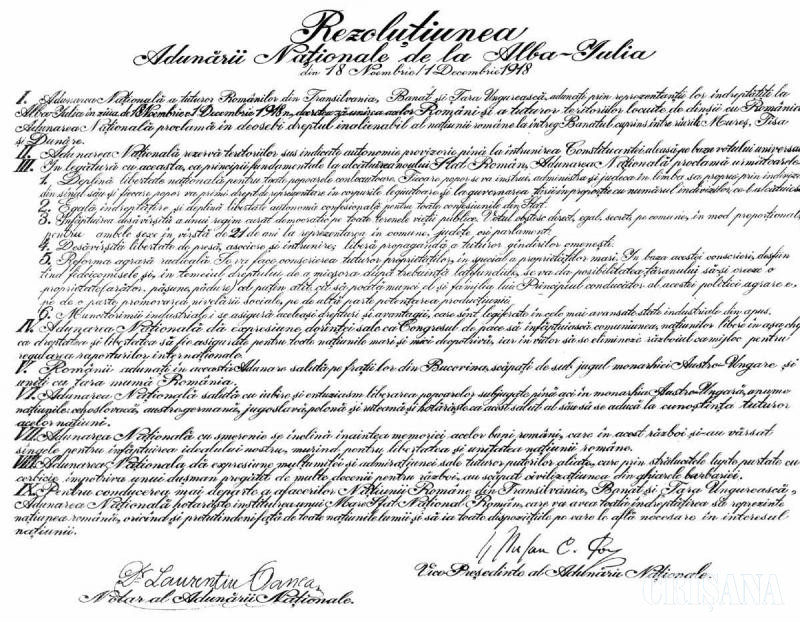 Rezoluțiunea
Adunării Naționale de la Alba-Iulia
din 18 Noembrie/1 Decembrie 1918
I. Adunarea Națională a tuturor Românilor din Transilvania, Banat și Țara Ungurească, adunați prin reprezentanții lor îndreptățiți la
Alba-Iulia în ziua de 18 Noembrie/1 Decembrie 1918, decretează unirea acelor Români și a tuturor teritoriilor locuite de dînșii cu România.
Adunarea Națională proclamă în deosebi dreptul inalienabil al națiunii române la întreg Banatul cuprins între rîurile Mureș, Tisa
și Dunăre.
II. Adunarea Națională rezervă teritoriilor sus indicate autonomie provizorie pînă la întrunirea Constituantei aleasă pe baza votului universal
III. În legătură cu aceasta, ca principii fundamentale la alcătuirea noului Stat Român, Adunarea Națională proclamă următoarele:
1. Deplină libertate națională pentru toate popoarele conlocuitoare. Fiecare popor se va instrui, administra și judeca în limba sa proprie prin indivizi
din sînul său și fiecare popor va primi drept de reprezentare în corpurile legiuitoare și la guvernarea țării în proporție cu numărul indivizilor, ce-l alcătuiesc
2. Egală îndreptățire și deplină libertate autonomă confesională pentru toate confesiunile din Stat.
3. Înfăptuirea desăvîrșită a unui regim curat democratic pe toate terenele vieții publice. Votul obștesc direct, egal, secret, pe comune, în mod proporțional,
pentru ambele sexe în vîrstă de 21 de ani la reprezentarea în comune, județe ori parlament.
4. Desăvîrșită libertate de presă, asociere și întrunire; liberă propagandă a tuturor gîndirilor omenești.
5. Reforma agrară radicală. Se va face conscrierea tuturor proprietăților, în special a proprietăților mari. În baza acestei conscrieri, desfiin-
țînd fideicomisele și, în temeiul dreptului de a micșora după trebuință latifundiile, se va da posibilitatea țăranului să-și creeze o
proprietate (arător, pășune, pădure) cel puțin atît, cît să poată munci el și familia lui. Principiul conducător al acestei politici agrare e,
pe de o parte promovarea nivelării sociale, pe de altă parte potențarea producțiunii.
6. Muncitorimii industriale i se asigură aceleași drepturi și avantagii, care sînt legiferate în cele mai avansate state industriale din apus.
IV. Adunarea Națională dă expresiune dorinței sale ca Congresul de pace să înfăptuiască comuniunea națiunilor libere în așa chip
ca dreptatea și libertatea să fie asigurate pentru toate națiunile mari și mici deopotrivă, iar în viitor să se elimineze războiul ca mijloc pentru
regularea raporturilor internaționale.
V. Românii adunați în această Adunare salută pe frații lor din Bucovina, scăpați de sub jugul monarhiei Austro-Ungare și
uniți cu țara mumă România.
VI. Adunarea Națională salută cu iubire și entuziasm liberarea popoarelor subjugate pînă aci în monarhia Austro-Ungară, anume
națiunile: cehoslovacă, austrogermană, jugoslavă, polonă și ruteană și hotărăște ca acest salut al său să se aducă la cunoștința tuturor
acelor națiuni.
VII. Adunarea Națională cu smerenie se înclină înaintea memoriei acelor bupi români, care în acest război și-au vărsat
singele pentru înfăptuirea idealului nostru, murind pentru libertatea și unitatea națiunii române.
VIII. Adunarea Națională dă expresiune mulțumitei și admirațiunei sale tuturor puterilor aliate, care prin strălucitele lupte purtate cu
cerbicie împotriva unui dușman pregătit de multe decenii pentru război, au scăpat civilizațiunea din ghiarele barbariei.
IX. Pentru conducerea mai departe a afacerilor Națiunii Române din Transilvania, Banat și Țara Ungurească,
Adunarea Națională hotărăște instituirea unui Mare Sfat Național Român, care va avea toată îndreptățirea să reprezinte
națiunea română, oricînd și pretutindeni față de toate națiunile lumii și să ia toate dispozițiile pe care le află necesare în interesul
națiunii.
Dr. Laurențiu Oanea
Notar al Adunării Naționale.
Ștefan C. Pop
Vice Președinte al Adunării Naționale.
CRIȘANA